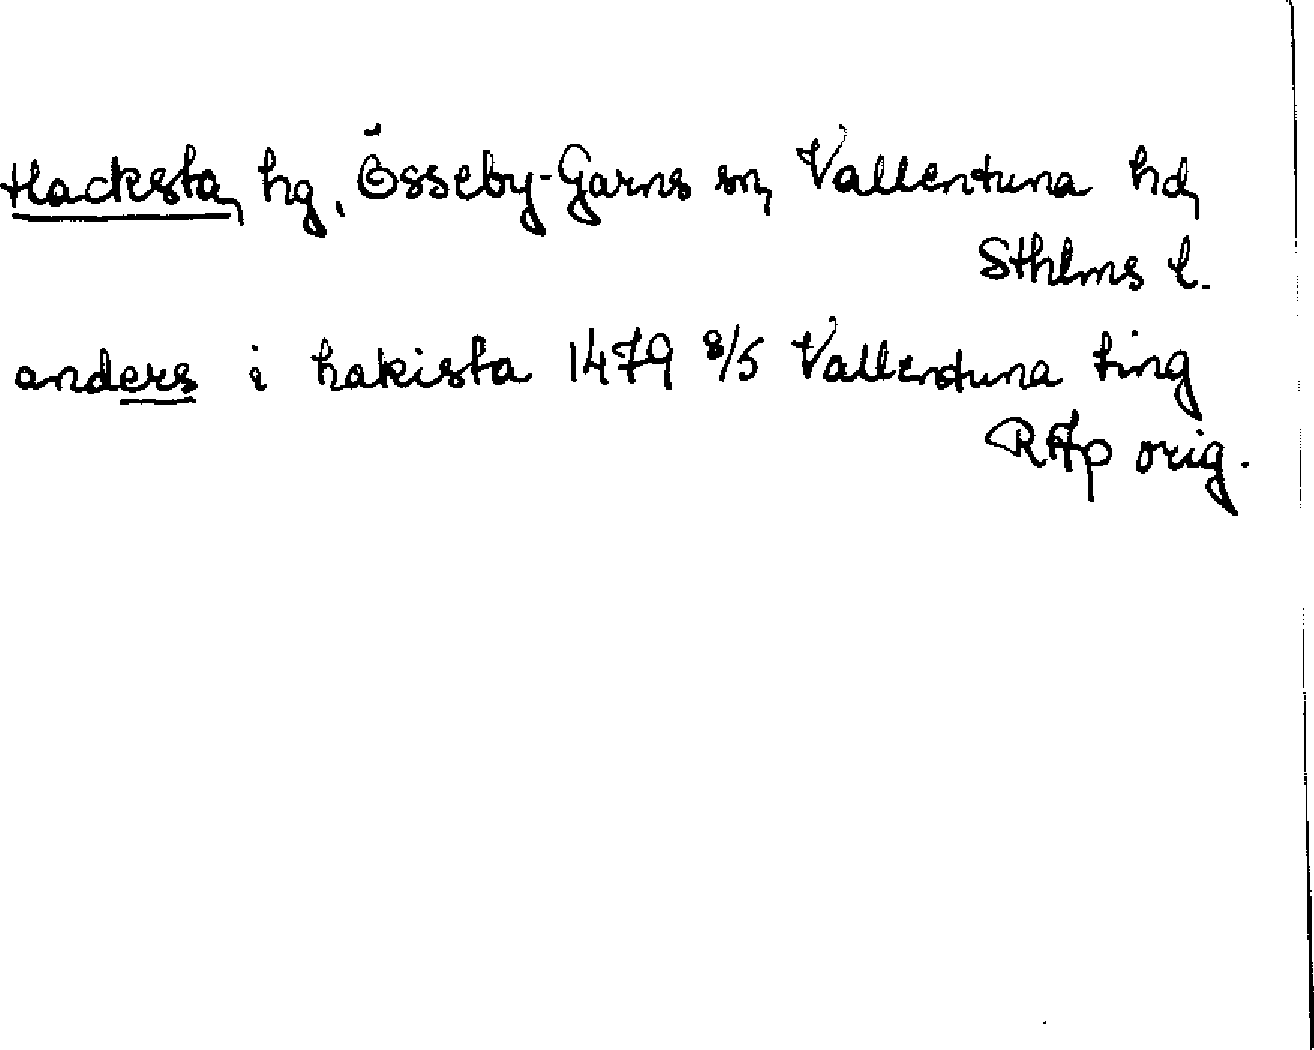 Hacksta, hg, Össeby-Garns sn, Vallentuna hd,
Sthlms l.
anders i hakista 1479 8/5 Vallentuna ting
RAp orig.